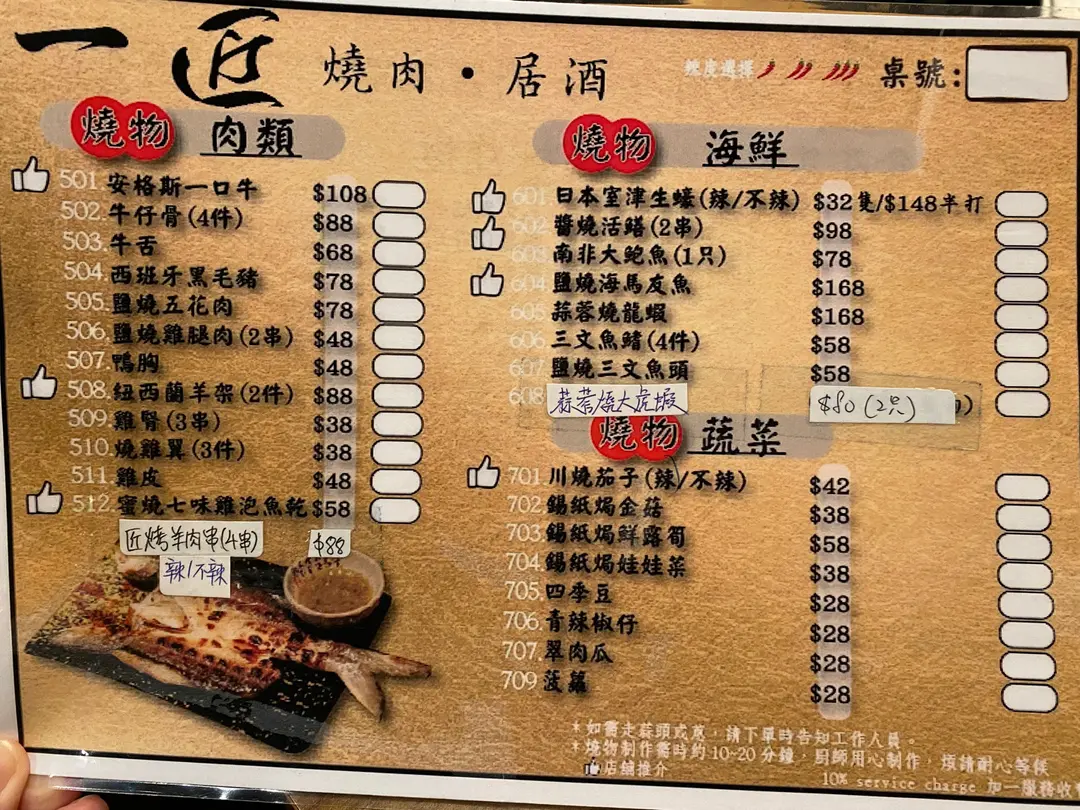 一匠 燒肉・居酒
辣度選擇
桌號:
燒物 肉類
501. 安格斯一口牛 $108
502. 牛仔骨(4件) $88
503. 牛舌 $68
504. 西班牙黑毛豬 $78
505. 鹽燒五花肉 $78
506. 鹽燒雞腿肉(2串) $48
507. 鴨胸 $48
508. 紐西蘭羊架(2件) $88
509. 雞腎(3串) $38
510. 燒雞翼(3件) $38
511. 雞皮 $48
512. 蜜燒七味雞泡魚乾 $58
匠烤羊肉串(4串) $88
辣/不辣
燒物 海鮮
601. 日本室津生蠔(辣/不辣) $32隻/$148半打
602. 醬燒活鱔(2串) $98
603. 南非大鮑魚(1只) $78
604. 鹽燒海馬友魚 $168
605. 蒜蓉燒龍蝦 $168
606. 三文魚鰭(4件) $58
607. 鹽燒三文魚頭 $58
608. 蒜茸燒大虎蝦 $80(2只)
燒物 蔬菜
701. 川燒茄子(辣/不辣) $42
702. 錫紙焗金菇 $38
703. 錫紙焗鮮露筍 $58
704. 錫紙焗娃娃菜 $38
705. 四季豆 $28
706. 青辣椒仔 $28
707. 翠肉瓜 $28
709 菠蘿 $28
*如需走蒜頭或蔥，請下單時告知工作人員。
*燒物制作需時約10~20分鐘，厨師用心制作，煩請耐心等候
店舖推介
10% service charge 加一服務收